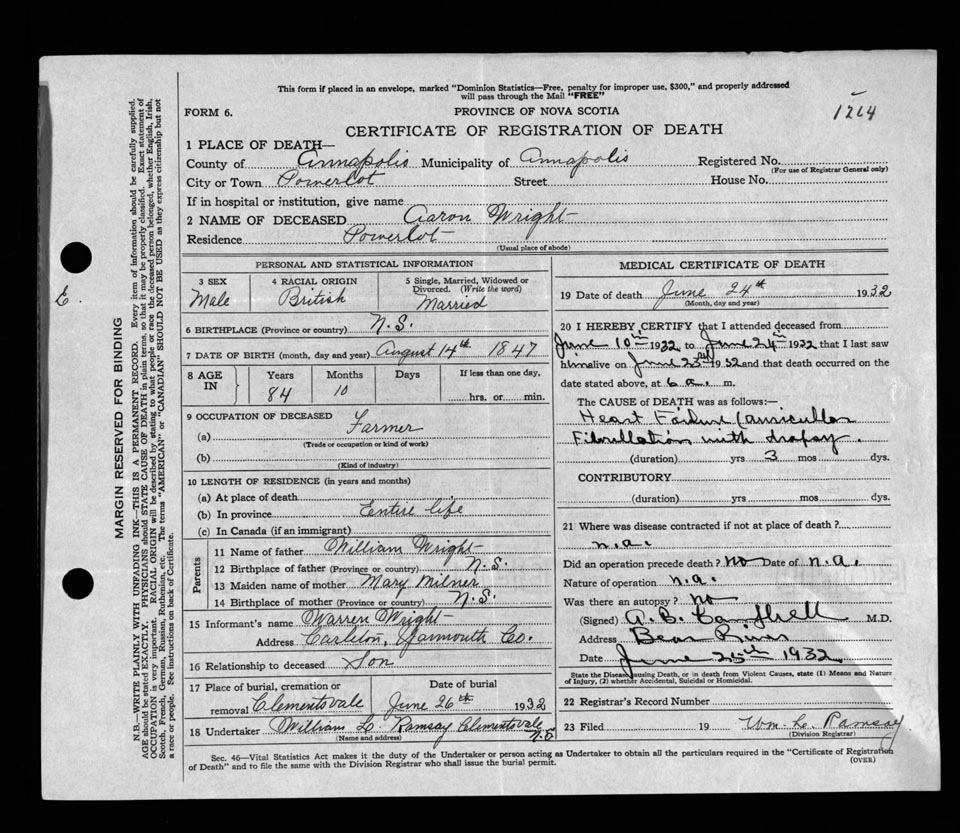 This form if placed in an envelope, marked "Dominion Statistics—Free, penalty for improper use, $300," and properly addressed
will pass through the Mail "FREE"
FORM 6.
PROVINCE OF NOVA SCOTIA
1214
CERTIFICATE OF REGISTRATION OF DEATH
1 PLACE OF DEATH—
County of Annapolis Municipality of Annapolis Registered No.
(For use of Registrar General only)
City or Town Powerlot Street House No.
If in hospital or institution, give name
2 NAME OF DECEASED Aaron Wright
Residence Powerlot
(Usual place of abode)
PERSONAL AND STATISTICAL INFORMATION
3 SEX 4 RACIAL ORIGIN 5 Single, Married, Widowed or
Divorced. (Write the word)
Male British Married
6 BIRTHPLACE (Province or country) N.S.
7 DATE OF BIRTH (month, day and year) August 14th 1847
8 AGE IN Years Months Days If less than one day,
84 10 hrs. or min.
9 OCCUPATION OF DECEASED
(a) Farmer
(Trade or occupation or kind of work)
(b)
(Kind of industry)
10 LENGTH OF RESIDENCE (in years and months)
(a) At place of death
(b) In province Entire life
(c) In Canada (if an immigrant)
Parents
11 Name of father William Wright
12 Birthplace of father (Province or country) N.S.
13 Maiden name of mother Mary Milner
14 Birthplace of mother (Province or country) N.S.
15 Informant's name Warren Wright
Address Carleton, Yarmouth Co.
16 Relationship to deceased Son
17 Place of burial, cremation or removal Date of burial
Clementsvale June 26th 1932
18 Undertaker William L. Ramsay Clementsvale
N.S.
(Name and address)
MEDICAL CERTIFICATE OF DEATH
19 Date of death June 24th 1932
(Month, day and year)
20 I HEREBY CERTIFY that I attended deceased from
June 10th 1932 to June 24th 1932 that I last saw
him alive on June 23rd 1932 and that death occurred on the
date stated above, at 6 a. m.
The CAUSE OF DEATH was as follows:—
Heart Failure (auricular
Fibrillation with dropsy.
(duration) yrs 3 mos dys.
CONTRIBUTORY
(duration) yrs mos dys.
21 Where was disease contracted if not at place of death?
n.a.
Did an operation precede death? No Date of n.a.
Nature of operation n.a.
Was there an autopsy? no
(Signed) A.B. Campbell M.D.
Address Bear River
Date June 25th 1932
State the Disease causing Death, or in death from Violent Causes, state (1) Means and Nature
of Injury, (2) whether Accidental, Suicidal or Homicidal.
22 Registrar's Record Number
23 Filed 19 Wm. L. Ramsay
(Division Registrar)
Sec. 46—Vital Statistics Act makes it the duty of the Undertaker or person acting as Undertaker to obtain all the particulars required in the "Certificate of Registration
of Death" and to file the same with the Division Registrar who shall issue the burial permit.
(OVER)
E.
MARGIN RESERVED FOR BINDING
N.B.—WRITE PLAINLY WITH UNFADING INK—THIS IS A PERMANENT RECORD. Every item of information should be carefully supplied.
AGE should be stated EXACTLY. PHYSICIANS should STATE CAUSE OF DEATH in plain terms, so that it may be properly classified. Exact statement of
OCCUPATION is very important. RACIAL ORIGIN will be described by stating to what people or race the deceased person belonged, whether English, Irish,
Scotch, French, German, Russian, Ruthenian, etc. The terms "AMERICAN" or "CANADIAN" SHOULD NOT BE USED as they express citizenship but not
a race or people. See instructions on back of Certificate.